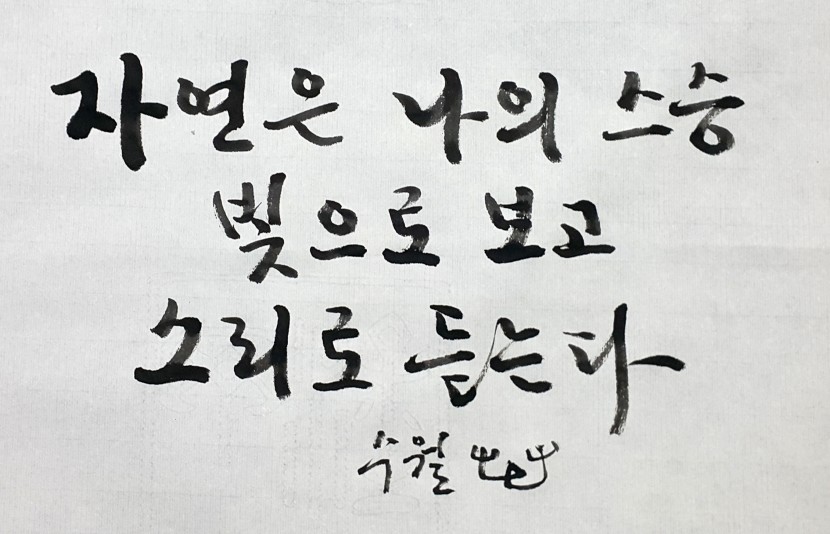 자연은 나의 스승
빛으로 보고
소리로 듣는다
수월